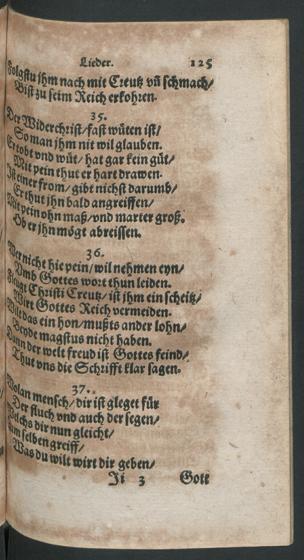 Lieder. 125
Folgstu jhm nach mit Creutz vñ schmach/
Bist zu seim Reich erkohren.
35.
Der Widerchrist/fast wüten ist/
So man jhm nit wil glauben.
Er tobt vnd wüt/ hat gar kein güt/
Mit pein thut er hart drawen.
Ist einer from/ gibt nichst darumb/
Er thut jhn bald angreiffen/
Mit pein ohn maß/vnd marter groß:
Ob er jhn mögt abreissen.
36.
Wer nicht hie pein/wil nehmen eyn/
Vmb Gottes wort thun leiden.
Fleugt Christi Creutz/ ist jhm ein scheitz/
Wirt Gottes Reich vermeiden.
Wilt das ein hon/mußts ander lohn/
Beyde magstus nicht haben.
Dann der welt freud ist Gottes feind/
Thut vns die Schrifft klar sagen.
37.
Wolan mensch/dir ist gleget für
Der fluch vnd auch der segen/
Welchs dir nun gleicht/
selben greiff/
Was du wilt wirt dir geben/
Ii 3 Gott